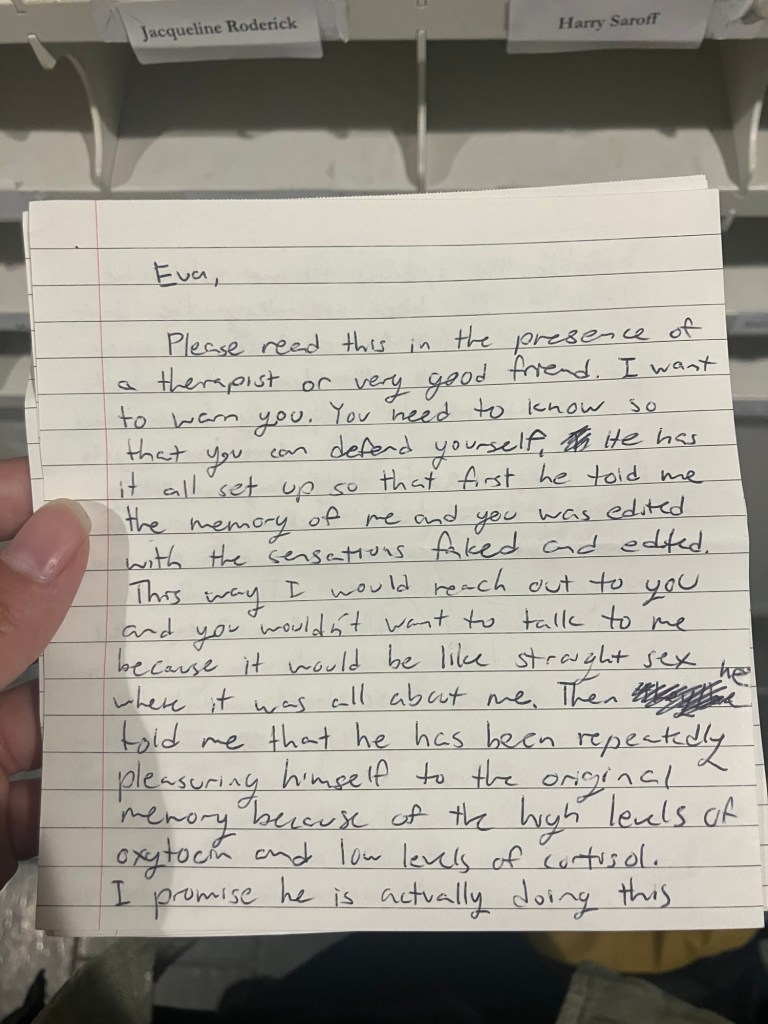 Jacqueline Roderick
Harry Saroff
Eva,
Please read this in the presence of
a therapist or very good friend. I want
to warn you. You need to know so
that you can defend yourself. He has
it all set up so that first he told me
the memory of me and you was edited
with the sensations faked and edited.
This way I would reach out to you
and you wouldn't want to talk to me
because it would be like straight sex
where it was all about me. Then he
told me that he has been repeatedly
pleasuring himself to the original
memory because of the high levels of
oxytocin and low levels of cortisol.
I promise he is actually doing this